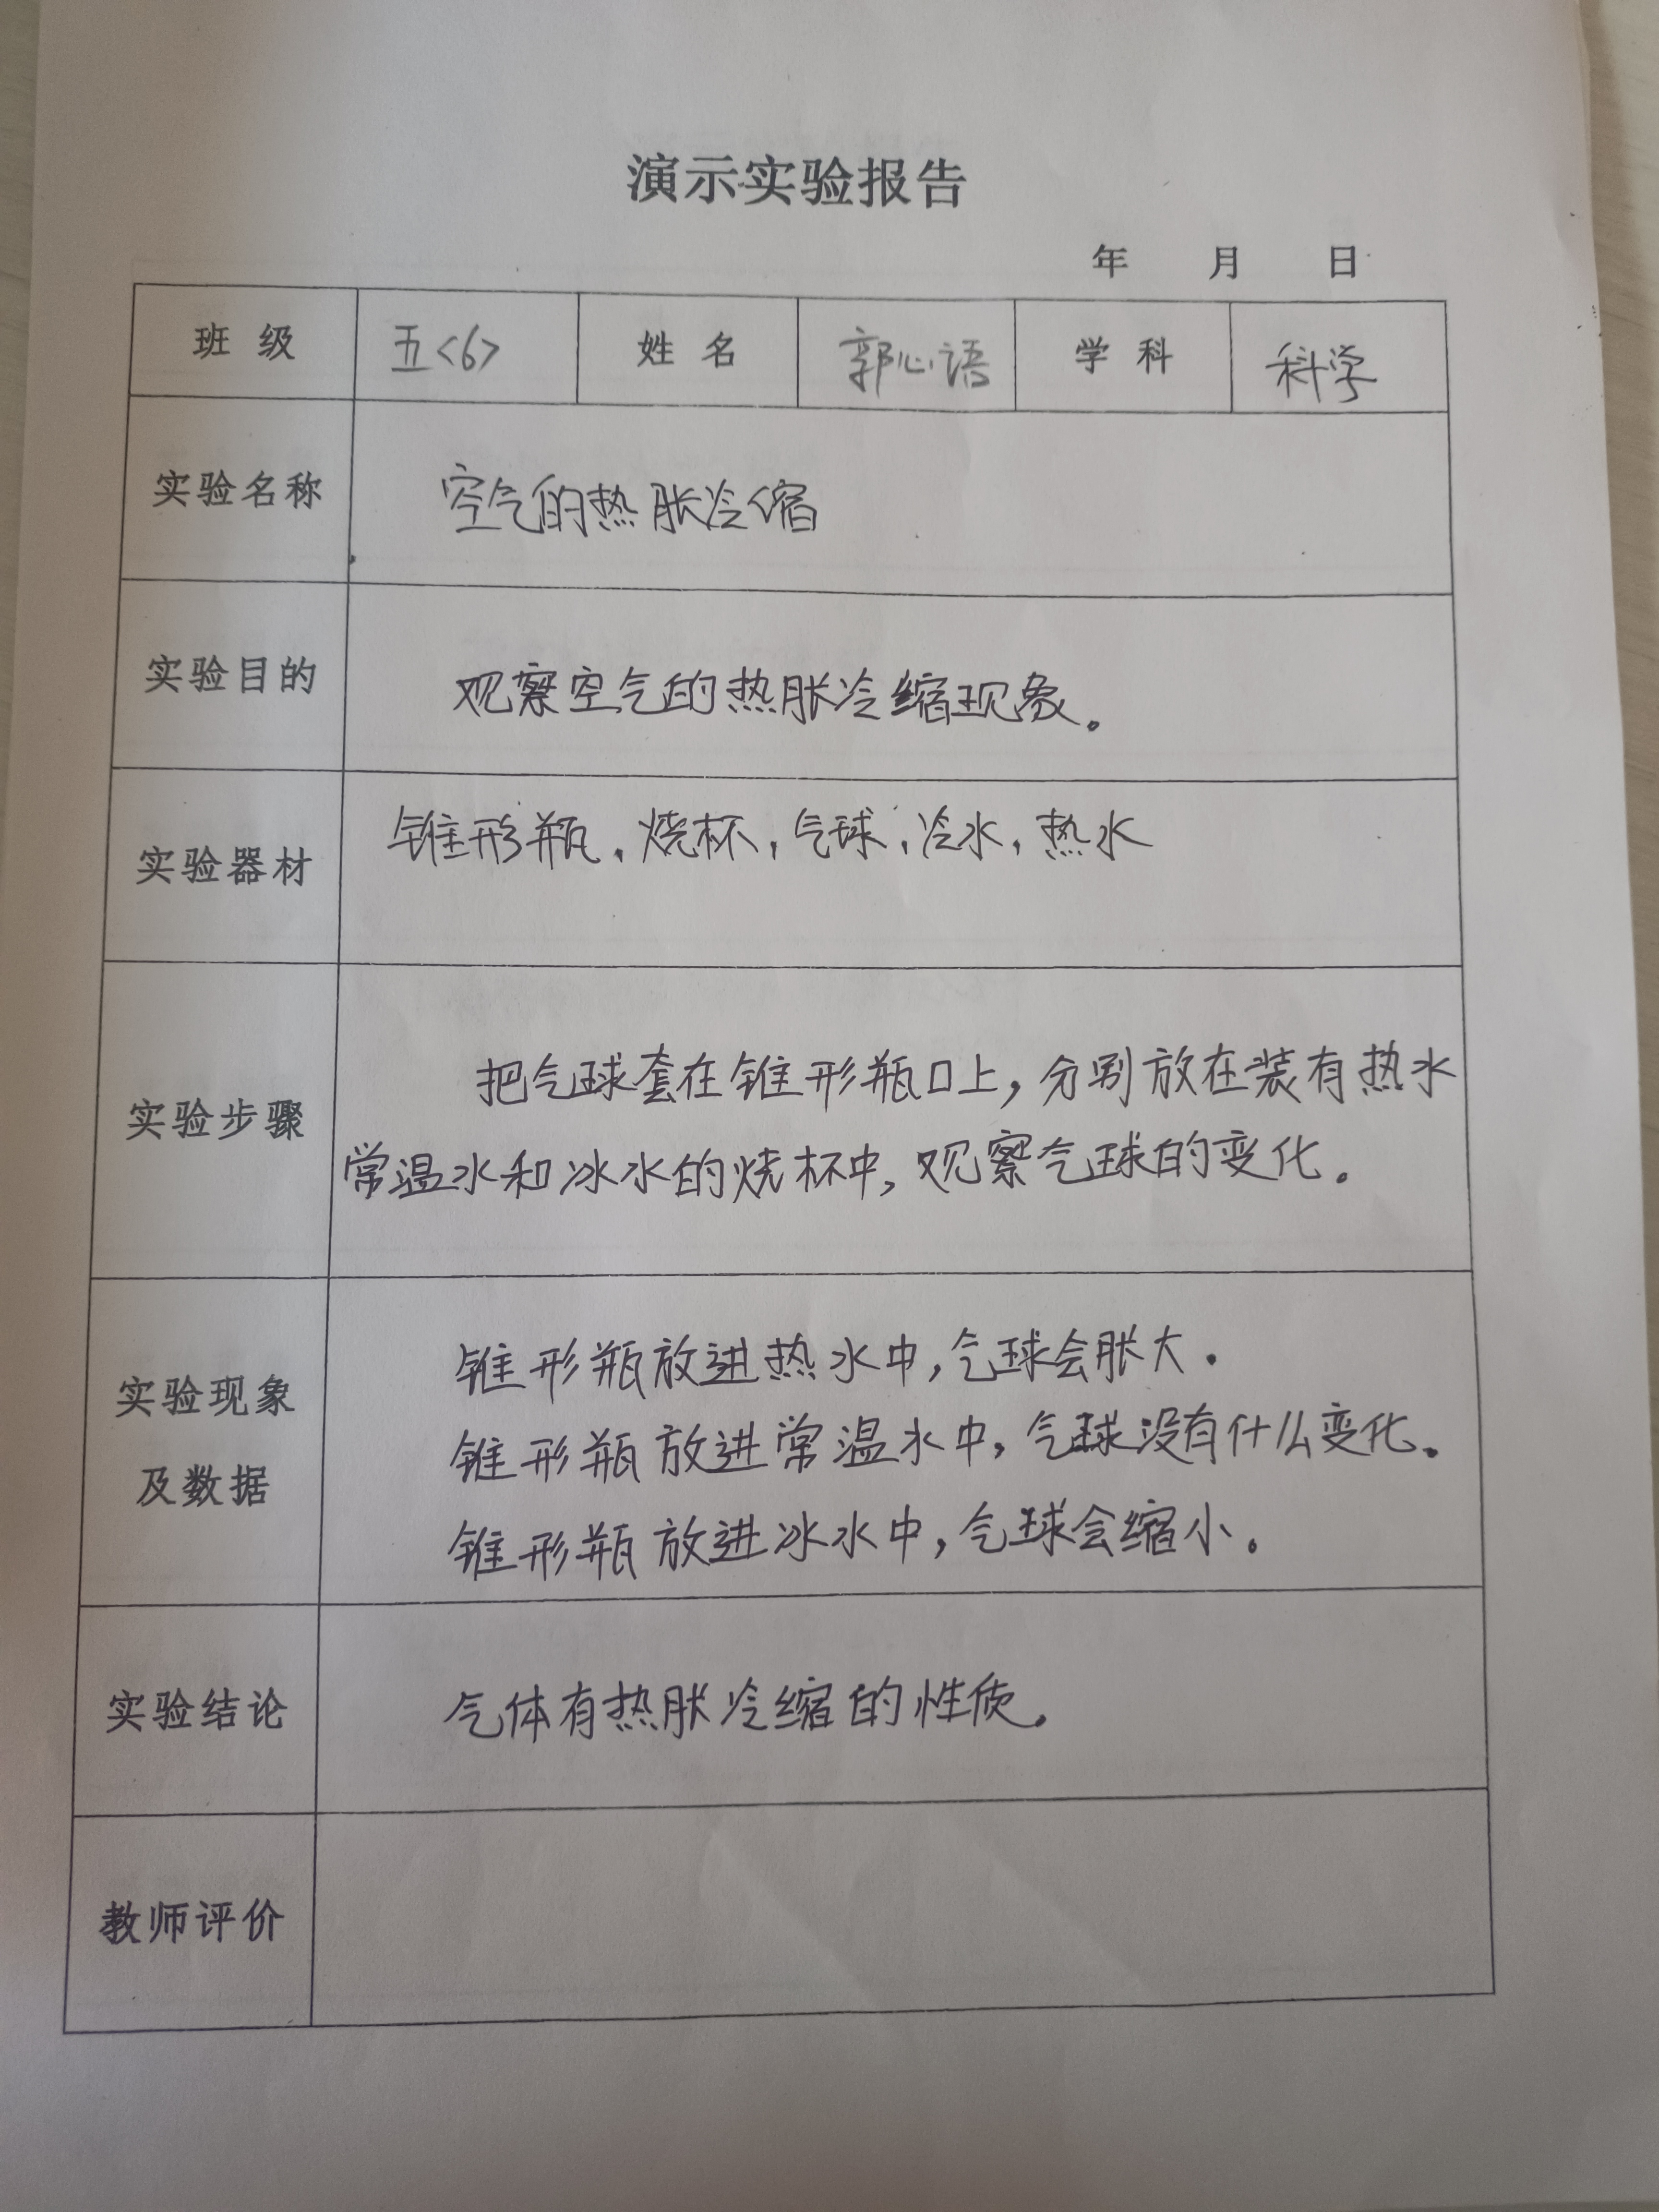 演示实验报告
年 月 日
班 级 五<6> 姓 名 郭心语 学 科 科学
实验名称 空气的热胀冷缩
实验目的 观察空气的热胀冷缩现象。
实验器材 锥形瓶，烧杯，气球，冷水，热水
把气球套在锥形瓶口上，分别放在装有热水
实验步骤
常温水和冰水的烧杯中，观察气球的变化。
锥形瓶放进热水中，气球会胀大．
实验现象
锥形瓶放进常温水中，气球没有什么变化。
及数据
锥形瓶放进冰水中，气球会缩小。
实验结论 气体有热胀冷缩的性质。
教师评价